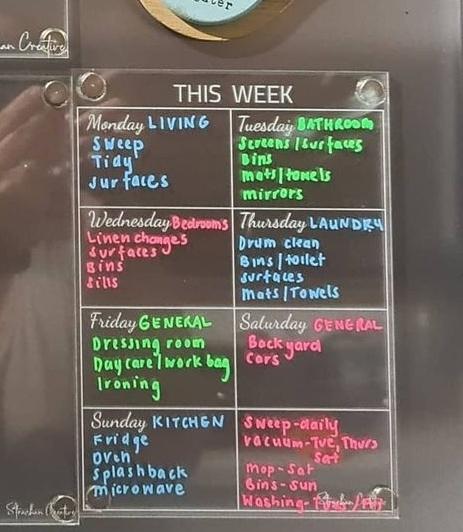 an Creative
THIS WEEK
Monday LIVING
Sweep
Tidy
surfaces
Tuesday BATHROOM
Screens/surfaces
Bins
mats/towels
mirrors
Wednesday Bedrooms
Linen changes
surfaces
Bins
sills
Thursday LAUNDRY
Drum clean
Bins/toilet
surfaces
mats/Towels
Friday GENERAL
Dressing room
Daycare/work bag
Ironing
Saturday GENERAL
Backyard
cars
Sunday KITCHEN
Fridge
Oven
splashback
microwave
Sweep-daily
vacuum-Tue, Thurs
Sat
mop-Sat
Bins-sun
Washing-
Strachan Creative
Strachan Creative